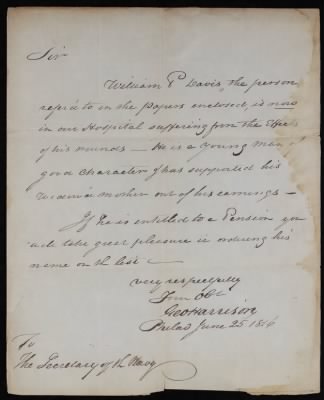 Sir
William P Davis, the person
refer'd to in the papers enclosed, is now
in our Hospital suffering from the Effects
of his wounds — He is a young Man of
good Character & has supported his
Widow'd mother out of his earnings —
If he is entitled to a Pension you
will take great pleasure in ordering his
name on the list —
very respectfully
Your Obt
Geo Harrison
Philad June 25 1816
To
The Secretary of the Navy